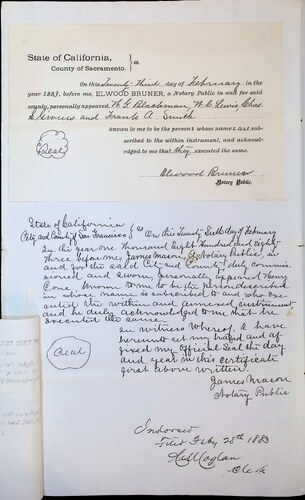 State of California,
County of Sacramento. } ss.
On this Twenty Third day of February in the
year 1883, before me, ELWOOD BRUNER, a Notary Public in and for said
county, personally appeared W. F. Blackman, W. C. Lewis, Chas
and Frank A. Smith
known to me to be the persons whose names are sub-
scribed to the within instrument, and acknowl-
edged to me that they executed the same.
Seal
Elwood Bruner
Notary Public.
State of California
City and County of San Francisco } ss On this Twenty Sixth day of February
In the year one Thousand Eight Hundred and Eighty
Three before me, James Mason, a Notary Public, in
and for the said City and County, duly commis
sioned and sworn, personally appeared Henry
Cone, known to me to be the person described
in whose name is subscribed to and who ex
ecuted the within and annexed instrument
and he duly acknowledged to me that he
executed the same.
In witness whereof, I have
hereunto set my hand and af
fixed my Official Seal the day
and year in this certificate
first above written.
Seal
James Mason
Notary Public
Indorsed
Filed Feby 28th 1883
Coglan
Clerk